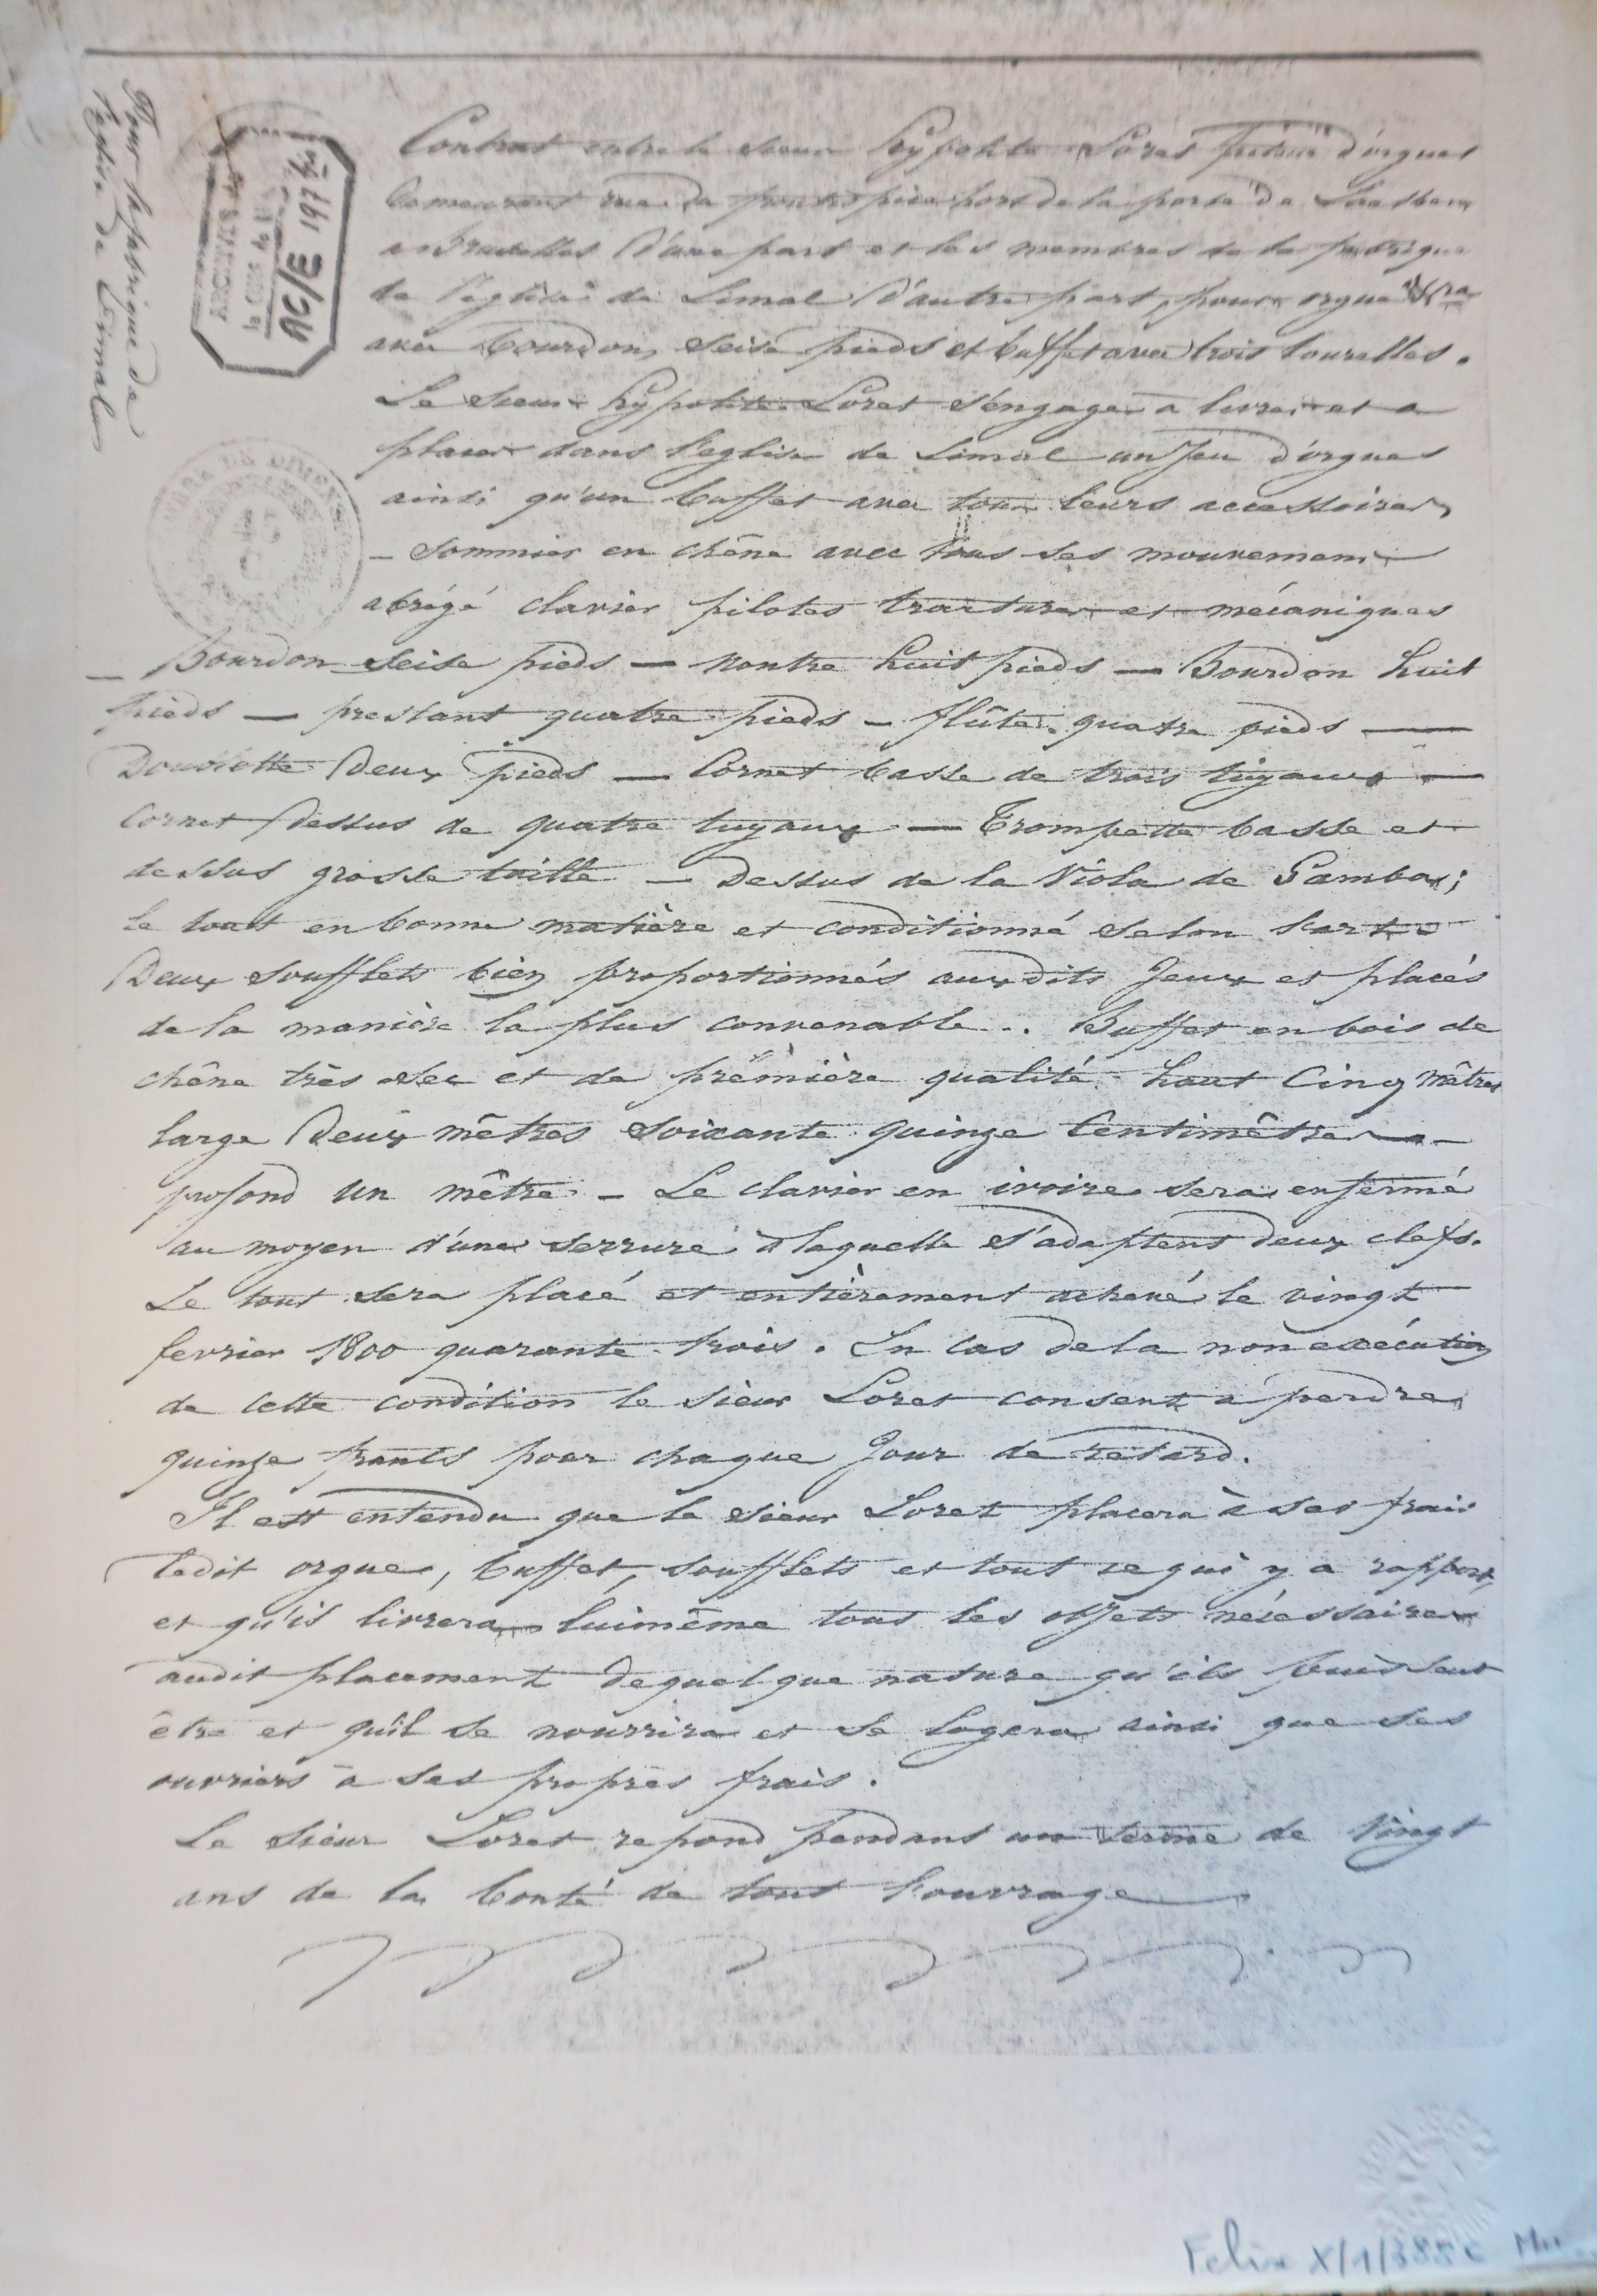 Pour la fabrique de
l'eglise de Limal
ARCHIVES
AC/E 197
Contrat entre le sieur Hypolite Loret facteur d'orgues
demeurant rue du hors de la porte de
a Bruxelles d'une part et les membres de la fabrique
de l'eglise de Limal d'autre part, pour orgue
avec Bourdon seise pieds et buffet avec trois tourelles.
Le sieur Hypolite Loret s'engage a livrer et a
placer dans l'eglise de Limal un Jeu d'orgues
ainsi qu'un buffet avec tous leurs accessoires
– Sommier en chêne avec tous ses mouvemens
abrégé clavier pilotes tractures et mécaniques
– Bourdon seise pieds — montre huit pieds — Bourdon huit
pieds — prestant quatre pieds – flûte quatre pieds —
Doublette Deux pieds — Cornet basse de trois tuyaux —
Cornet dessus de quatre tuyaux — Trompette basse et
dessus grosse taille — Dessus de la Viola de Gamba;
le tout en bonne matière et conditionné selon l'art –
Deux soufflets bien proportionnés aux dits Jeux et placés
de la manière la plus convenable . Buffet en bois de
chêne très sec et de prèmière qualité haut Cinq mêtres
large Deux mêtres soixante quinze Centimêtres —
profond un mêtre – Le clavier en ivoire sera enfermé
au moyen d'une serrure à laquelle s'adaptent deux clefs.
Le tout sera placé et entièrement achevé le vingt
fevrier 1800 quarante trois. En Cas de la non exécution
de cette condition le sieur Loret consent à perdre
quinze francs pour chaque Jour de retard.
Il est entendu que le sieur Loret placera à ses frais
ledit orgue, buffet, soufflets et tout ce qui y a rapport,
et qu'il livrera luimême tous les objets nécessaires
audit placement de quelque nature qu'ils puissent
être et qu'il se nourrira et se logera ainsi que ses
ouvriers à ses propres frais.
Le sieur Loret repond pendant un terme de vingt
ans de la bonté de tout l'ouvrage
Felix X/1/385c